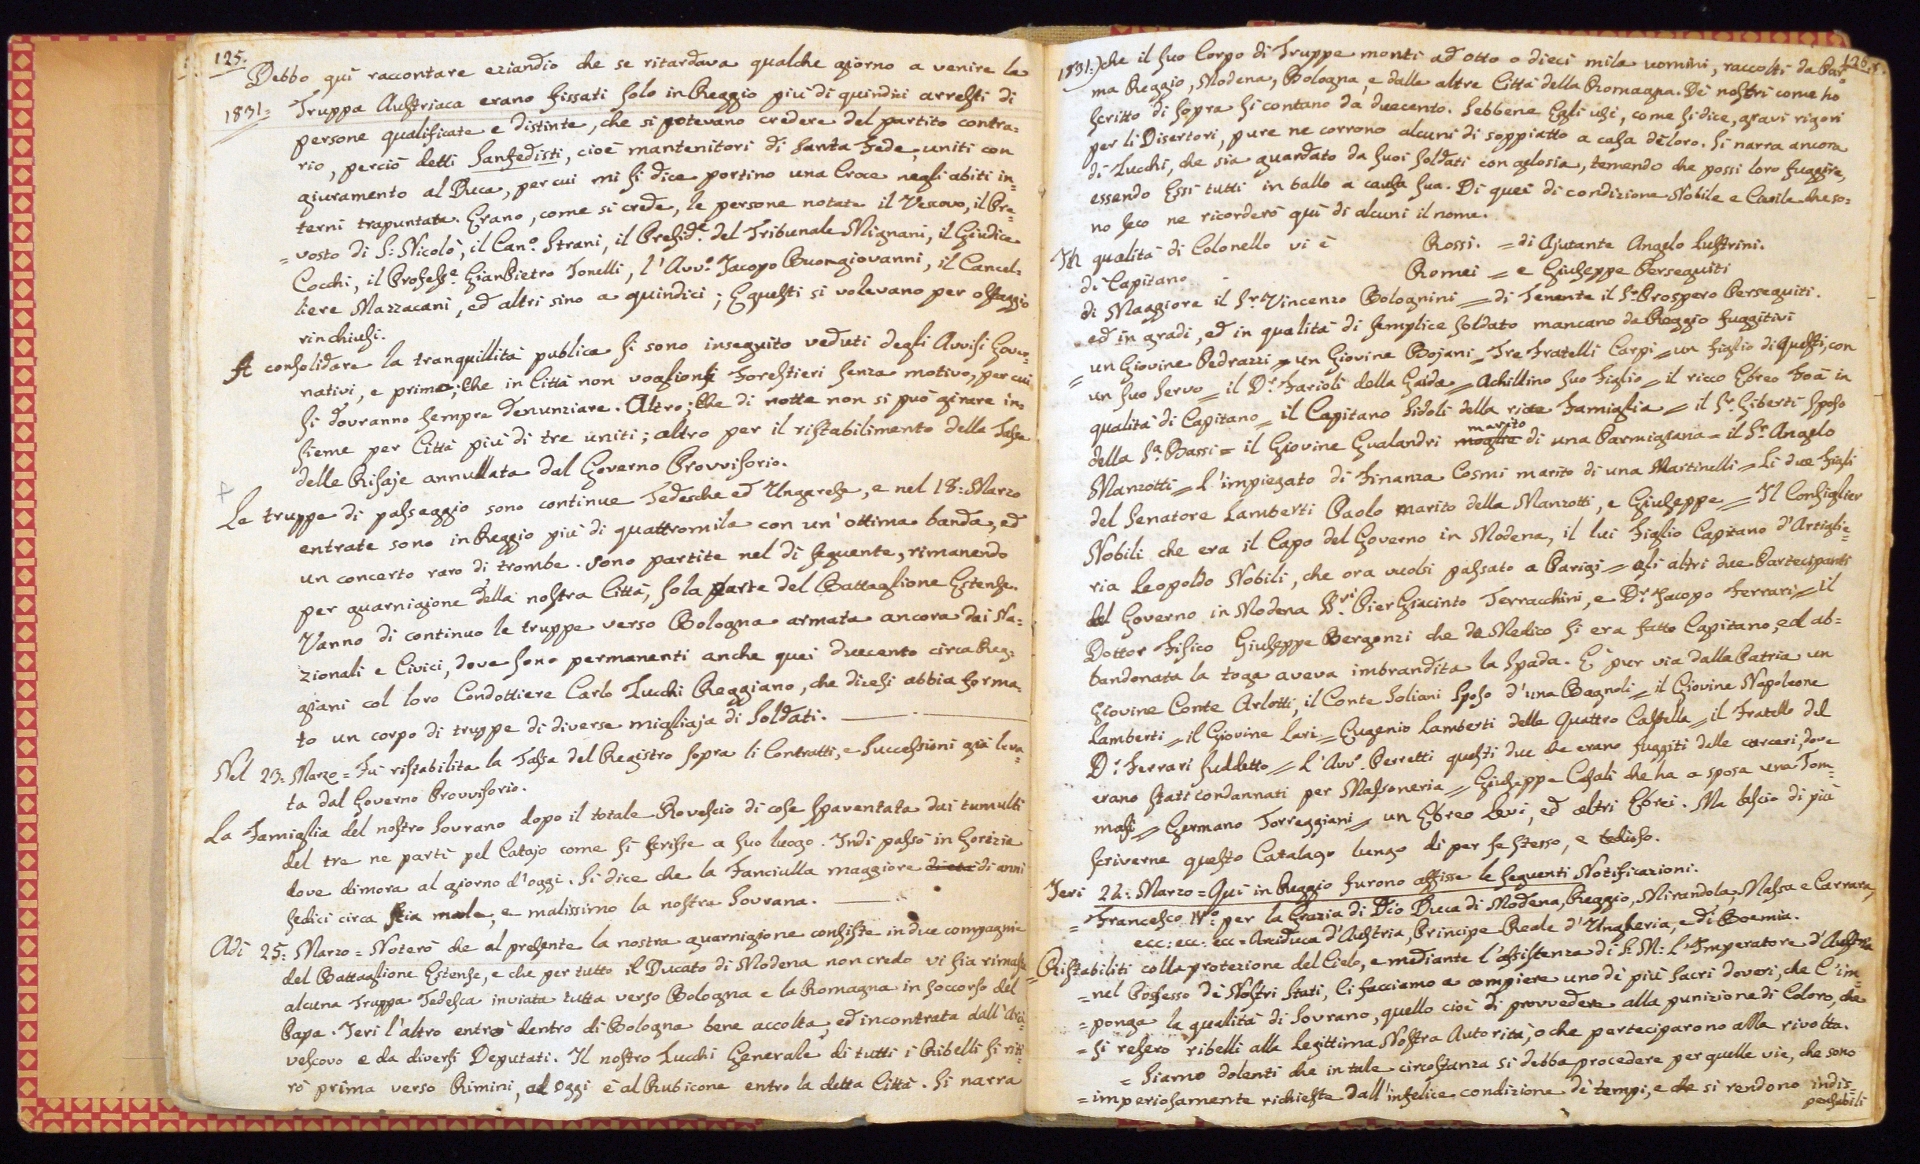 125.
Debbo quì raccontare eziandio che se ritardava qualche giorno a venire la
1831: Truppa Austriaca erano fissati solo in Reggio più di quindici arresti di
persone qualificate e distinte, che si potevano credere del partito contra=
rio, perciò detti Sanfedisti, cioè mantenitori di Santa Fede, uniti con
giuramento al Duca, per cui mi si dice portino una Croce negli abiti in=
terni trapuntata. Erano, come si crede, le persone notate il Vescovo, il Pre=
=vosto di S. Nicolò, il Can.º Strani, il Presid.e del Tribunale Mignani, il Giudice
Cocchi, il Profess.e GianPietro Tonelli, l'Avv.º Jacopo Buongiovanni, il Cancel=
liere Mazzacani, ed altri sino a quindici; E questi si volevano per ostaggio
rinchiusi.
A consolidare la tranquillità publica si sono inseguito veduti degli Avvisi Gover=
nativi, e primo; Che in Città non voglionsi Forestieri senza motivo, per cui
si dovranno sempre denunziare. Altro; Che di notte non si può girare in=
sieme per Città più di tre uniti; altro per il ristabilimento della Tassa
delle Risaje annullata dal Governo Provvisorio.
Le truppe di passaggio sono continue Tedesche ed Ungaresi, e nel 18: Marzo
entrate sono in Reggio più di quattromila con un'ottima banda, ed
un concerto raro di trombe. Sono partite nel dì seguente, rimanendo
per guarnigione della nostra Città, sola parte del Battaglione Estense.
Vanno di continuo le truppe verso Bologna armata ancora dai Na=
zionali e Civici, dove sono permanenti anche quei duecento circa Reg=
giani col loro Condottiere Carlo Zucchi Reggiano, che dicesi abbia forma=
to un corpo di truppe di diverse migliaja di Soldati.
Nel 23: Marzo = Fù ristabilita la Tassa del Registro sopra li Contratti, e Successioni già leva=
ta dal Governo Provvisorio.
La Famiglia del nostro Sovrano dopo il totale Rovescio di cose spaventata dai tumulti
del tre ne partì pel Catajo come si scrisse a suo luogo. Indi passò in Gorizia
dove dimora al giorno d'oggi. Si dice che la Fanciulla maggiore di età di anni
sedici circa stia male, e malissimo la nostra Sovrana.
Adì 25: Marzo = Noterò che al presente la nostra guarnigione consiste in due compagnie
del Battaglione Estense, e che per tutto il Ducato di Modena non credo vi sia rimasta
alcuna Truppa Tedesca inviata tutta verso Bologna e la Romagna in soccorso del
Papa. Jeri l'altro entrò dentro di Bologna bene accolta, ed incontrata dall'Arci=
vescovo e da diversi Deputati. Il nostro Zucchi Generale di tutti i Ribelli si riti=
rò prima verso Rimini, ed oggi è al Rubicone entro la detta Città. Si narra
126.
1831:) che il suo Corpo di Truppe monti ad otto o dieci mila uomini, raccolti da Par=
ma Reggio, Modena, Bologna, e dalle altre Città della Romagna. De' nostri come ho
scritto di sopra si contano da duecento. Sebbene Egli usi, come si dice, gravi rigori
per li Disertori, pure ne corrono alcuni di soppiatto a casa de loro. Si narra ancora
di Zucchi, che sia guardato da suoi soldati con gelosia, temendo che possi loro fuggire,
essendo Essi tutti in ballo a causa sua. Di quei di condizione Nobile e Civile che so=
no seco ne ricorderò quì di alcuni il nome.
In qualità di Colonello vi è Rossi. = di Ajutante Angelo Lustrini.
di Capitano Romei = e Giuseppe Perseguiti
di Maggiore il S.r Vincenzo Bolognini = di Tenente il S.r Prospero Perseguiti.
ed in gradi, ed in qualità di semplice soldato mancano da Reggio fuggitivi
= un Giovine Pedrazzi = un Giovine Bojani = Tre Fratelli Carpi = un figlio di questi, con
un suo servo = il D.r Farioli della Gaida = Achillino suo Figlio = il ricco Ebreo Foà in
qualità di Capitano = il Capitano Sidoli della ricca Famiglia = il S.r Giberti sposo
della S.a Bassi = il Giovine Gualandri moglie marito di una Parmigiana = il S.r Angelo
Manzotti = L'impiegato di Finanza Cosmi marito di una Martinelli = Li due Figli
del Senatore Lamberti Paolo marito della Manzotti, e Giuseppe = Il Consiglier
Nobili che era il Capo del Governo in Modena, il lui Figlio Capitano d'Artiglie=
ria Leopoldo Nobili, che ora vuolsi passato a Parigi = gli altri due Partecipanti
del Governo in Modena D.ri Pier Giacinto Terracchini, e D.r Jacopo Ferrari = il
Dottor Fisico Giuseppe Bergonzi che da Medico si era fatto Capitano, ed ab=
bandonata la toga aveva imbrandita la spada. E' pur via dalla Patria un
Giovine Conte Arlotti, il Conte Soliani sposo d'una Bagnoli = il Giovine Napoleone
Lamberti = il Giovine Lari = Eugenio Lamberti delle Quattro Castella = il Fratello del
D.r Ferrari suddetto = L'Avv.º Peretti questi due che erano fuggiti dalle carceri, dove
erano stati condannati per Massoneria = Giuseppe Casali che ha a sposa una Tom=
masi = Germano Torreggiani = un Ebreo Levi, ed altri Ebrei. Ma lascio di più
scriverne questo Catalago lungo di per se stesso, e tedioso.
Jeri 24: Marzo = Quì in Reggio furono affisse le seguenti Notificazioni.
= Francesco IV.º per la Grazia di Dio Duca di Modena, Reggio, Mirandola, Massa e Carrara,
ecc: ecc: ecc = Arciduca d'Austria, Principe Reale d'Ungheria, e di Boemia.
Ristabiliti colla protezione del Cielo, e mediante l'assistenza di S. M: L'Imperatore d'Austria
=nel Possesso de' Nostri Stati, Ci facciamo a compiere uno de' più sacri doveri, che C'im=
=ponga la qualità di Sovrano, quello cioè di provvedere alla punizione di Coloro, che
=si resero ribelli alla legittima Nostra Autorità, o che parteciparono alla rivolta.
= Siamo dolenti che in tale circostanza si debba procedere per quelle vie, che sono
=imperiosamente richieste dall'infelice condizione de' tempi, e che si rendono indis=
pensabili